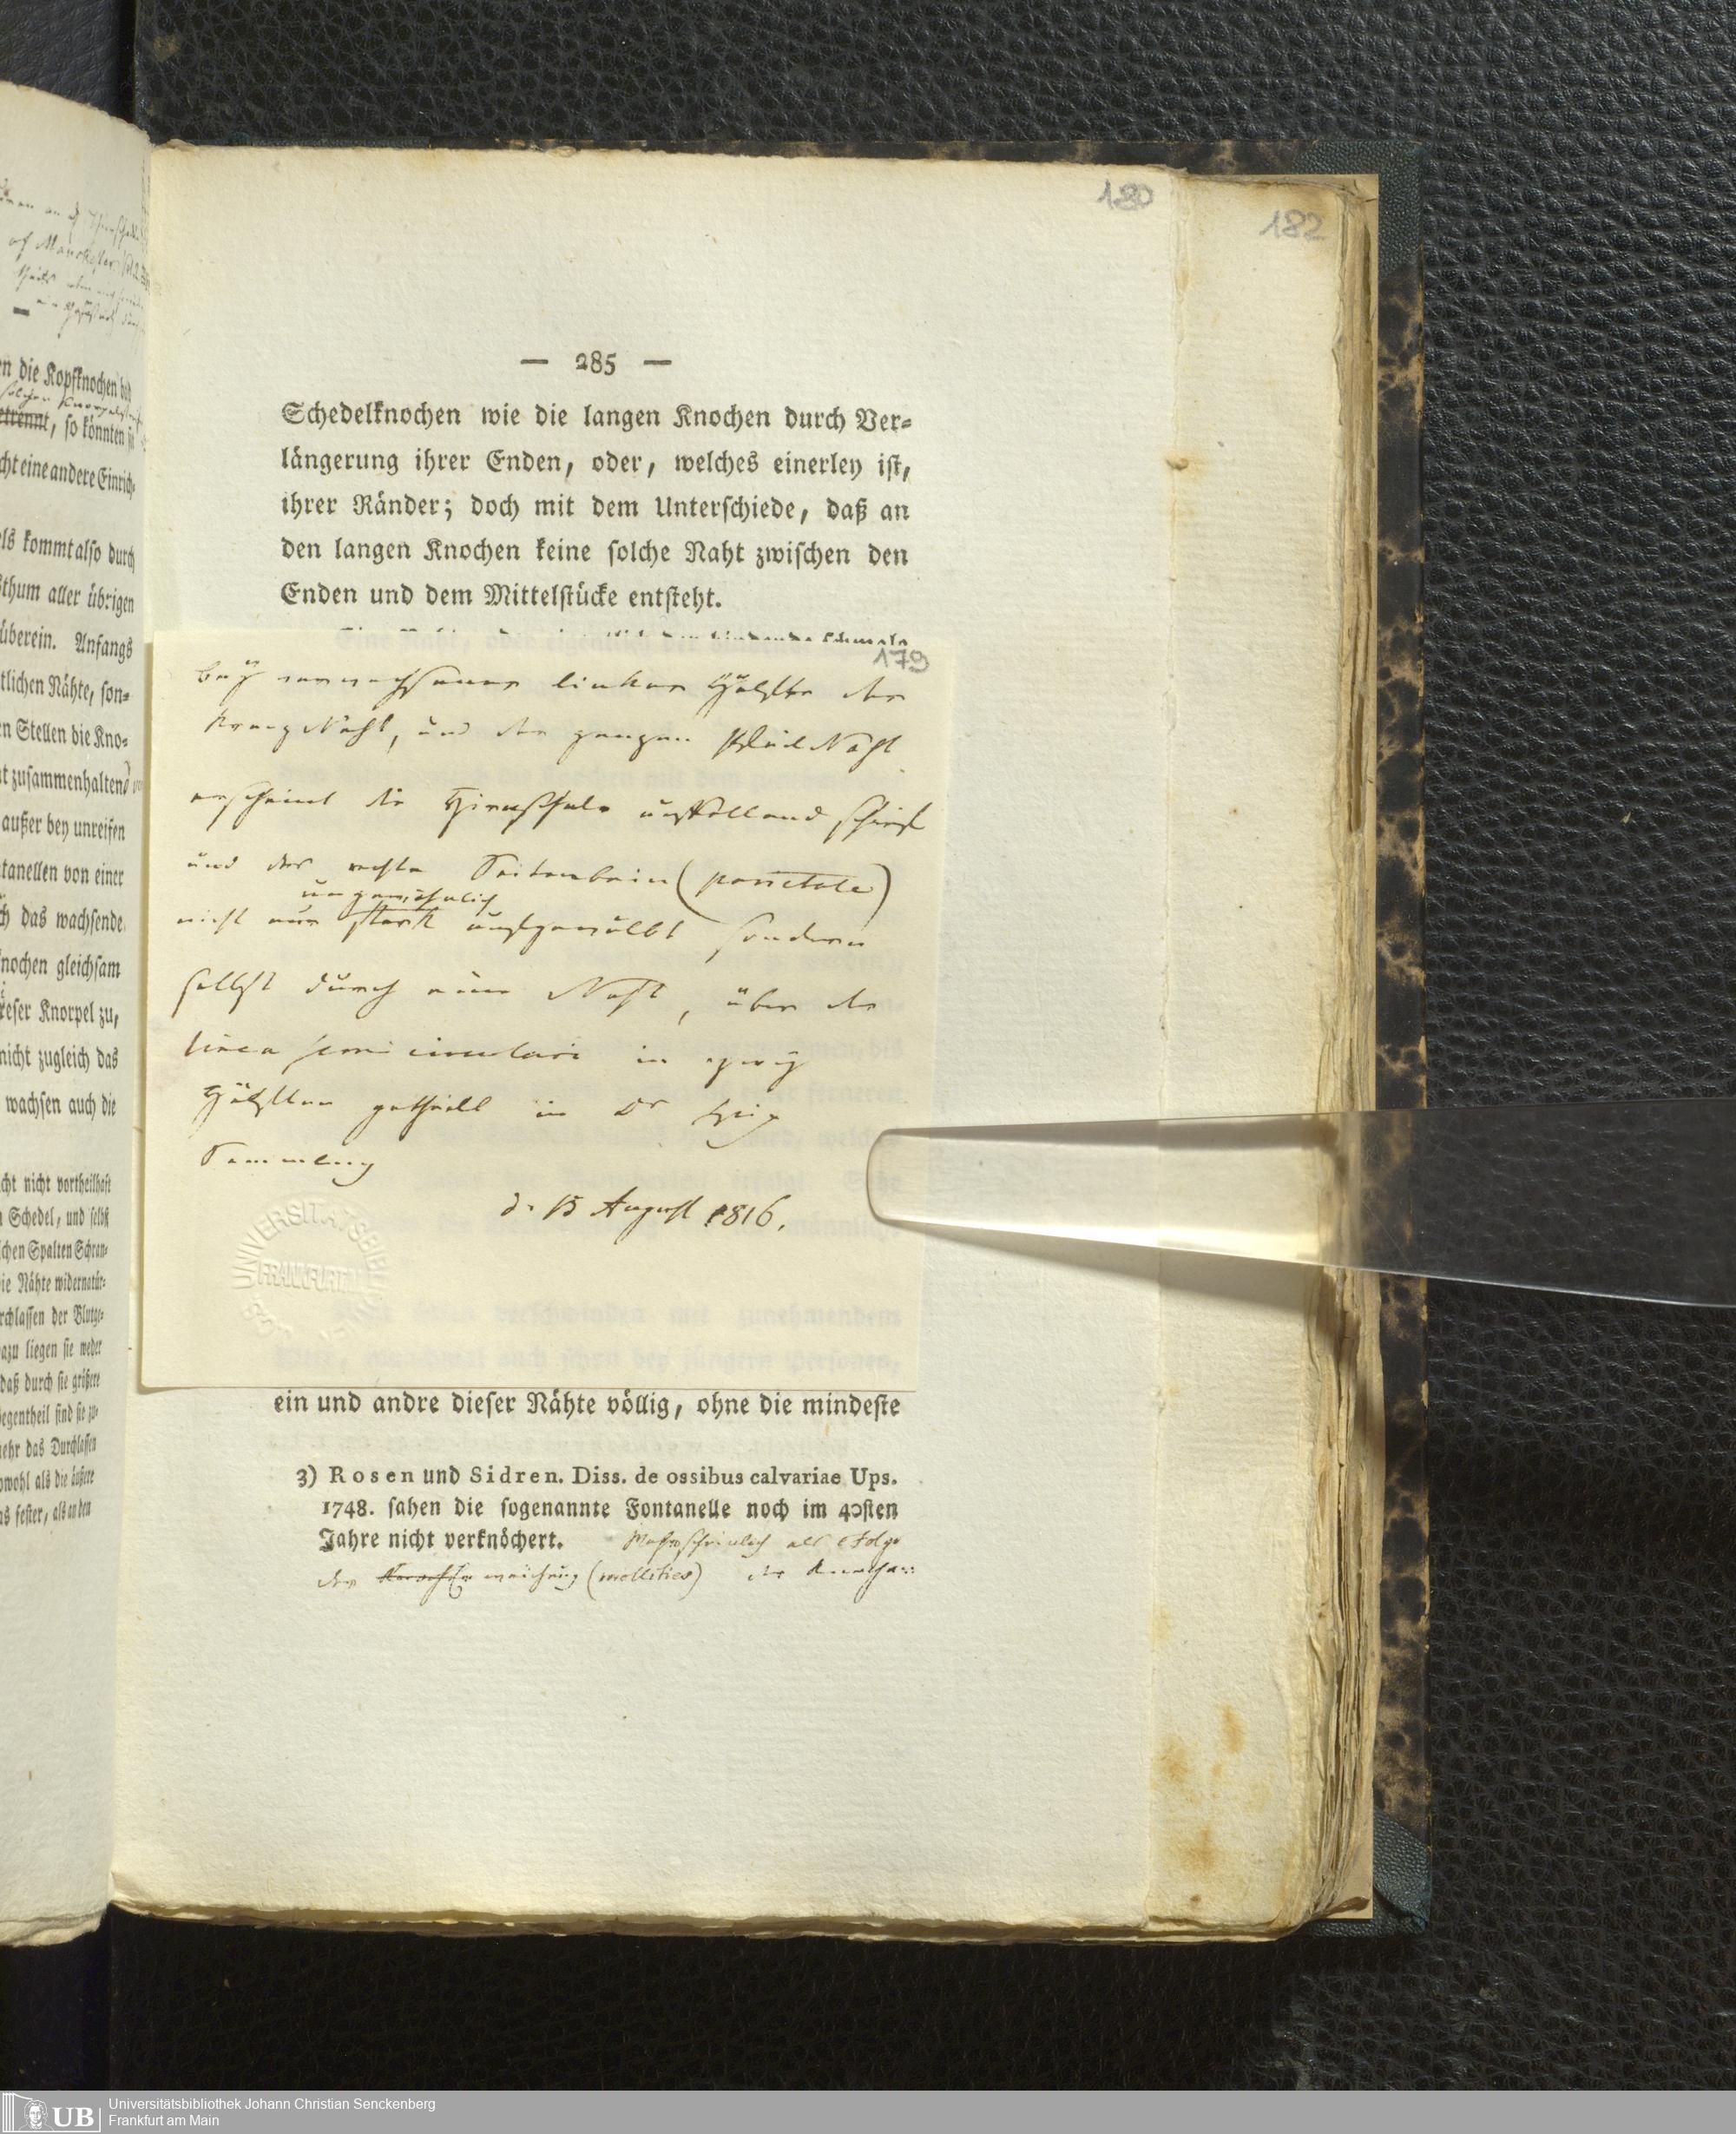 180
182
— 285 —
Schedelknochen wie die langen Knochen durch Ver-
längerung ihrer Enden, oder, welches einerley ist,
ihrer Ränder; doch mit dem Unterschiede, daß an
den langen Knochen keine solche Naht zwischen den
Enden und dem Mittelstücke entsteht.
179
bey verwachsener linker Hälfte der
Kranz Naht, und der ganzen Pfeil Naht
erscheint die Hirnschale auffallend schief
und das rechte Seitenbein (parietale)
ungewöhnlich
nicht nur stark ausgewölbt, sondern
selbst durch eine Naht, über der
linea semicirculari in zwey
Hälften getheilt in Dr
Sammlung
d. 15 August 1816.
ein und andre dieser Nähte völlig, ohne die mindeste
3) Rosen und Sidren. Diss. de ossibus calvariae Ups.
1748. sahen die sogenannte Fontanelle noch im 40sten
Jahre nicht verknöchert. Wahrscheinlich als Folge
der Erweichung (mollities) der Knochen
en die Kopfknochen
etrennt, so könnten sie
cht eine andere Einrich-
els kommt also durch
sthum aller übrigen
überein. Anfangs
tlichen Nähte, son-
en Stellen die Kno-
t zusammenhaltend
außer bey unreifen
ntanellen von einer
ch das wachsende
nochen gleichsam
ieser Knorpel zu,
nicht zugleich das
wachsen auch die
cht nicht vortheilhaft
n Schedel, und selbst
schen Spalten Schran-
ie Nähte widernatür-
rchlassen der Blutge-
azu liegen sie weder
daß durch sie größere
egentheil sind sie zu-
ehr das Durchlassen
owohl als die äußere
as fester, als an den
UNIVERSITÄTSBIBL
FRANKFURT
UB
Universitätsbibliothek Johann Christian Senckenberg
Frankfurt am Main